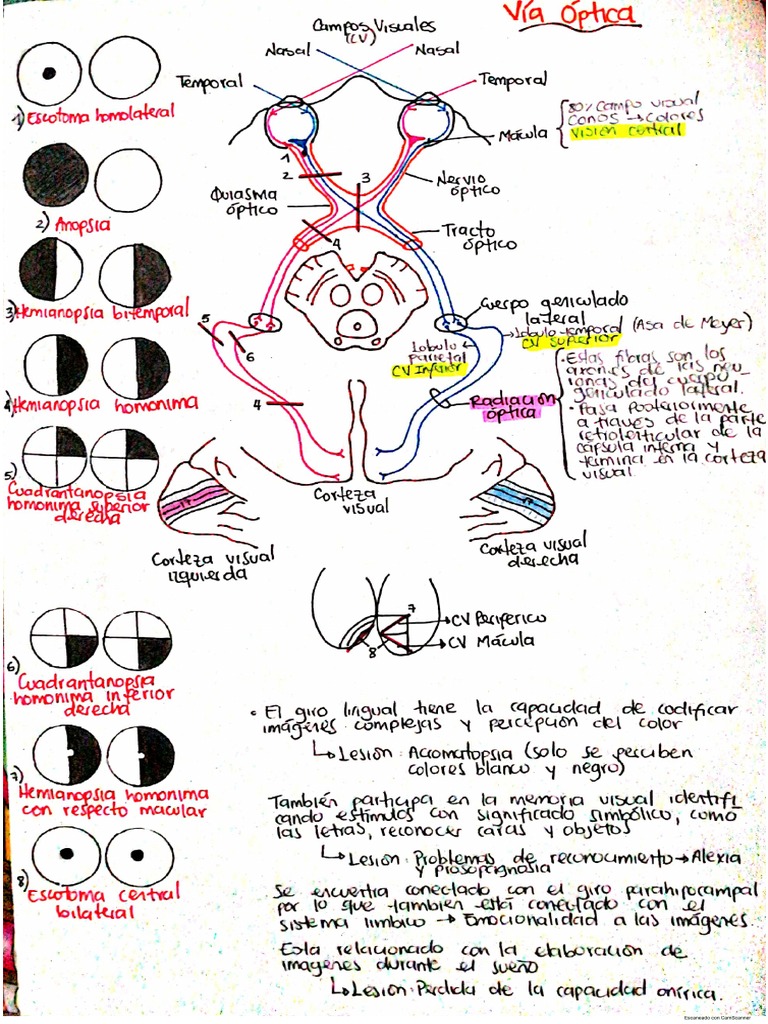 Vía Óptica
Campos Visuales
(CV)
Nasal
Nasal
Temporal
Temporal
1) Escotoma homolateral
Mácula
80% Campo visual
Conos → Colores
Visión central
1
2
3
Nervio
óptico
Quiasma
óptico
2) Anopsia
4
Tracto
óptico
3) Hemianopsia bitemporal
Cuerpo geniculado
lateral
5
6
Lobulo temporal (Asa de Meyer)
CV Superior
Lobulo
parietal
CV Inferior
4) Hemianopsia homonima
4
Radiación
óptica
• Estas fibras son los
axones de las neu_
ronas del cuerpo
geniculado lateral.
• Pasa posteriormente
a traves de la parte
retrolenticular de la
cápsula interna y
termina en la corteza
visual.
5) Cuadrantanopsia
homonima superior
derecha
17
17
Corteza
visual
Corteza visual
izquierda
Corteza visual
derecha
7
CV Periferico
CV Mácula
8
6) Cuadrantanopsia
homonima inferior
derecha
7) Hemianopsia homonima
con respecto macular
8) Escotoma central
bilateral
• El giro lingual tiene la capacidad de codificar
imágenes complejas y percepción del color
↳ Lesión: Acromatopsia (solo se perciben
colores blanco y negro)
También participa en la memoria visual identifi_
cando estímulos con significado simbólico, como
las letras, reconocer caras y objetos
↳ Lesión: Problemas de reconocimiento → Alexia
y prosopagnosia
Se encuentra conectado con el giro parahipocampal
por lo que tambien está conectado con el
sistema limbico → Emocionalidad a las imágenes.
Esta relacionado con la elaboración de
imagenes durante el sueño
↳ Lesión: Perdida de la capacidad onírica.
Escaneado con CamScanner